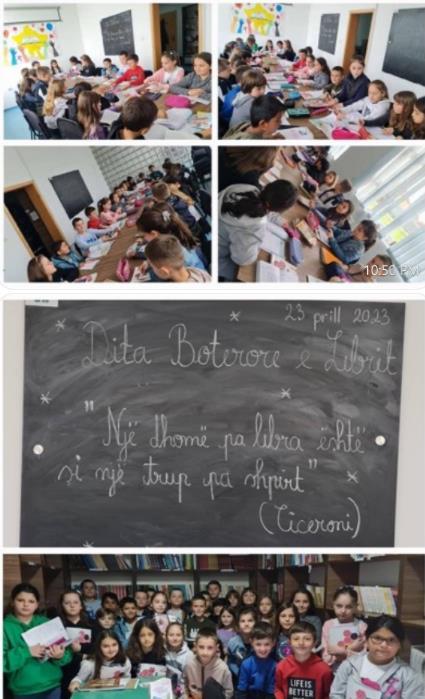 10:50 PM
23 prill 2023
Dita Boterore e Librit
"Një dhomë pa libra është
si një trup pa shpirt"
(Ciceroni)
LIFE IS
BETTER